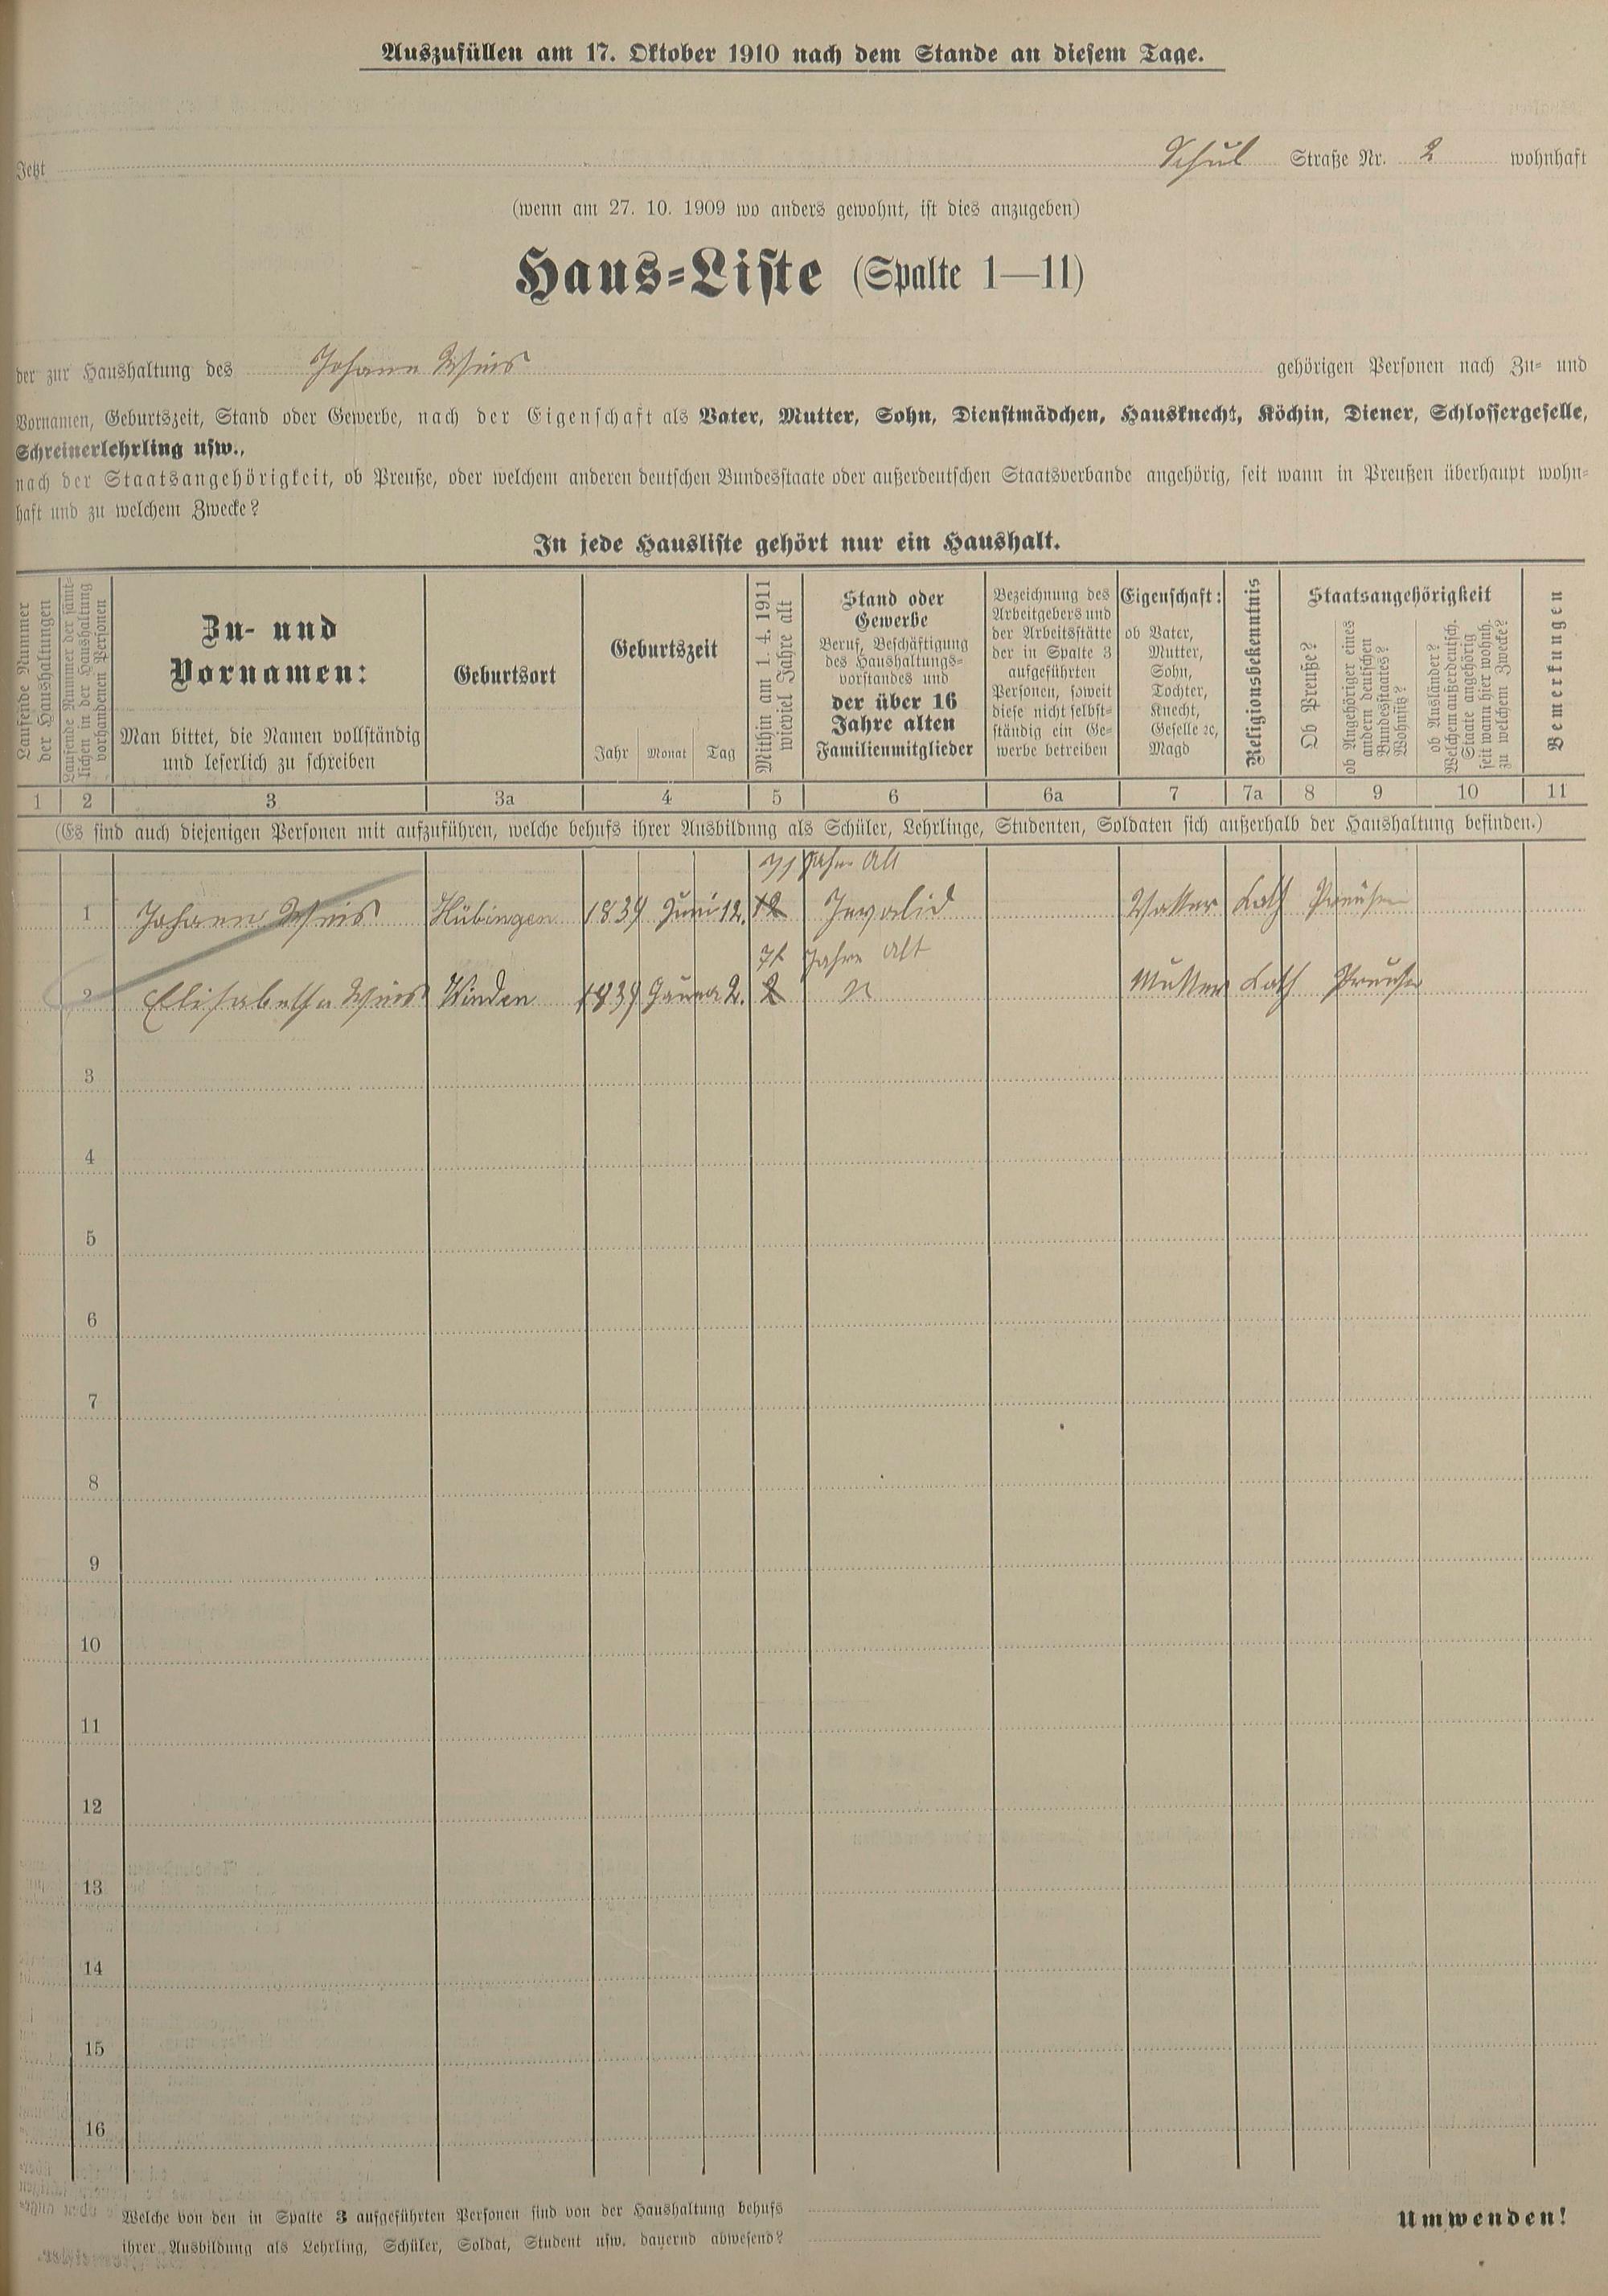 Auszufüllen am 17. Oktober 1910 nach dem Stande an diesem Tage.
Jetzt Schul Straße Nr. 2 wohnhaft
(wenn am 27. 10. 1909 wo anders gewohnt, ist dies anzugeben)
Haus-Liste (Spalte 1—11)
der zur Haushaltung des Johann gehörigen Personen nach Zu- und
Vornamen, Geburtszeit, Stand oder Gewerbe, nach der Eigenschaft als Vater, Mutter, Sohn, Dienstmädchen, Hausknecht, Köchin, Diener, Schlossergeselle,
Schreinerlehrling usw.,
nach der Staatsangehörigkeit, ob Preuße, oder welchem anderen deutschen Bundesstaate oder außerdeutschen Staatsverbande angehörig, seit wann in Preußen überhaupt wohn-
haft und zu welchem Zwecke?
In jede Hausliste gehört nur ein Haushalt.
Laufende Nummer
der Haushaltungen
Laufende Nummer der sämt-
lichen in der Haushaltung
vorhandenen Personen
Zu- und
Vornamen:
Man bittet, die Namen vollständig
und leserlich zu schreiben
Geburtsort
Geburtszeit
Jahr Monat Tag
Mithin am 1. 4. 1911
wieviel Jahre alt
Stand oder
Gewerbe
Beruf, Beschäftigung
des Haushaltungs-
vorstandes und
der über 16
Jahre alten
Familienmitglieder
Bezeichnung des
Arbeitgebers und
der Arbeitsstätte
der in Spalte 3
aufgeführten
Personen, soweit
diese nicht selbst-
ständig ein Ge-
werbe betreiben
Eigenschaft:
ob Vater,
Mutter,
Sohn,
Tochter,
Knecht,
Geselle ꝛc,
Magd
Religionsbekenntnis
Staatsangehörigkeit
Ob Preuße?
ob Angehöriger eines
andern deutschen
Bundesstaates?
Wohnsitz?
ob Ausländer?
Welchem außerdeutsch.
Staate angehörig
seit wann hier wohnh.
zu welchem Zwecke?
Bemerkungen
1 2 3 3a 4 5 6 6a 7 7a 8 9 10 11
(Es sind auch diejenigen Personen mit aufzuführen, welche behufs ihrer Ausbildung als Schüler, Lehrlinge, Studenten, Soldaten sich außerhalb der Haushaltung befinden.)
71 Jahre alt
1 Johann Hübingen 1839 Juni 12. 12 Invalid Vatter Kath Preußen
71 Jahre alt
2 Elisabetha Winden 1839 2. 2 Mutter Kath Preuße
3
4
5
6
7
8
9
10
11
12
13
14
15
16
Welche von den in Spalte 3 aufgeführten Personen sind von der Haushaltung behufs
ihrer Ausbildung als Lehrling, Schüler, Soldat, Student usw. dauernd abwesend?
Umwenden!